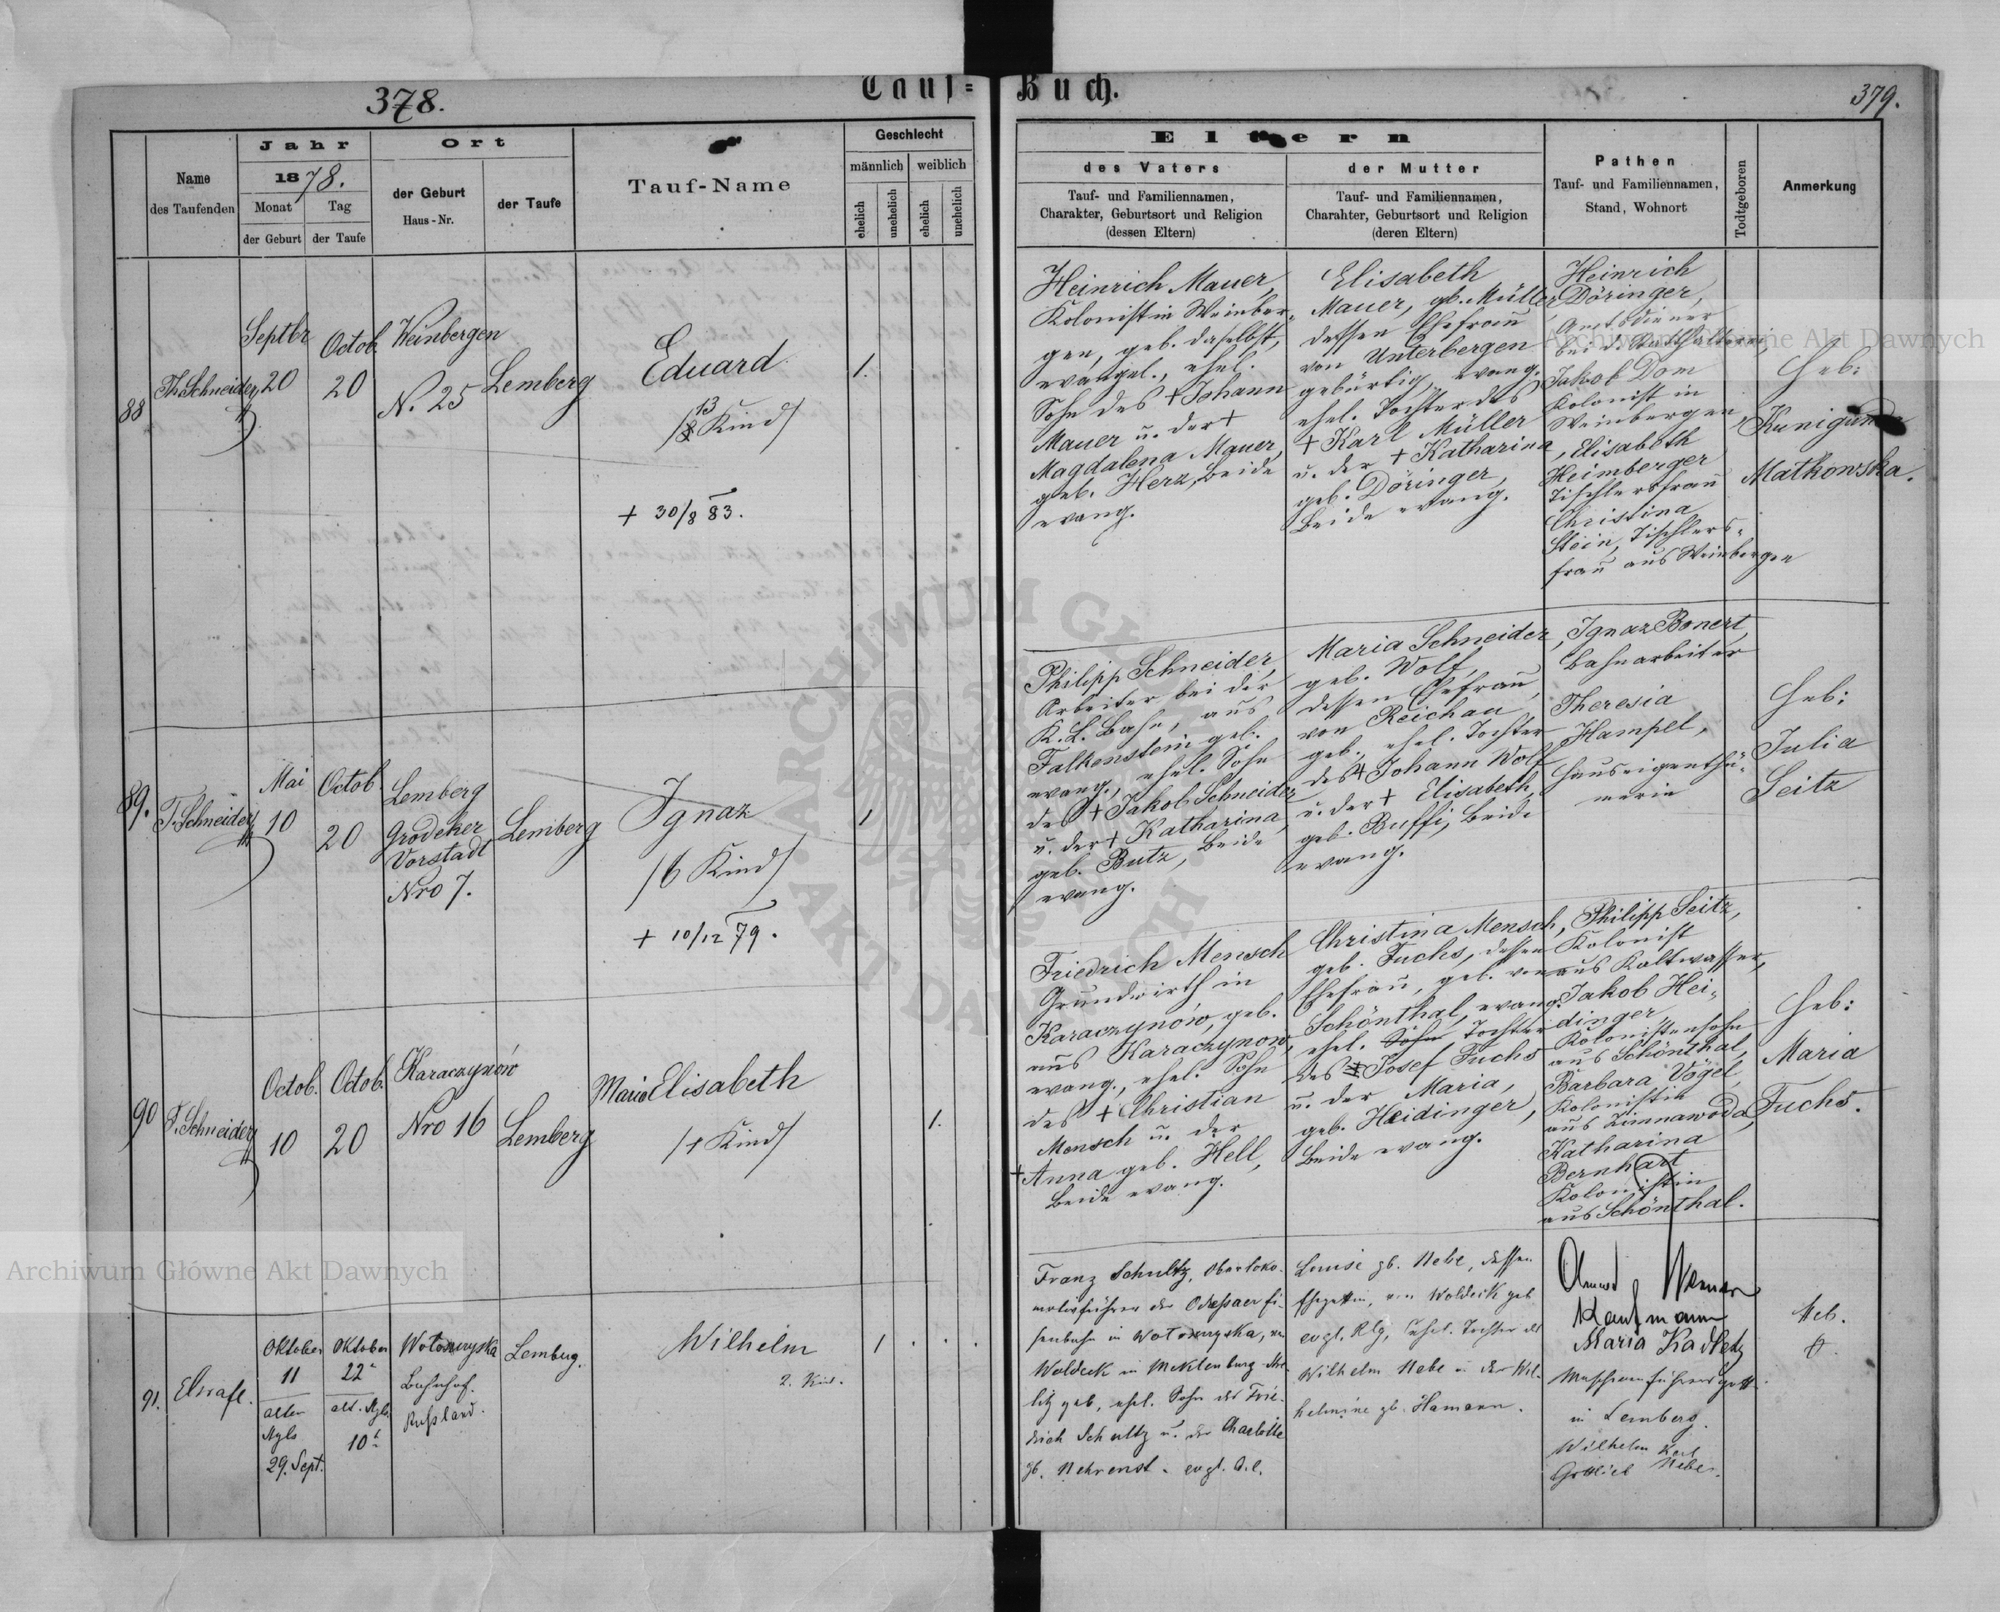 378.
Tauf=
Buch.
379.
Name
des Taufenden
Jahr
1878.
Monat
Tag
der Geburt
der Taufe
Ort
der Geburt
Haus-Nr.
der Taufe
Tauf-Name
Geschlecht
männlich
weiblich
ehelich
unehelich
ehelich
unehelich
Eltern
des Vaters
Tauf- und Familiennamen,
Charakter, Geburtsort und Religion
(dessen Eltern)
der Mutter
Tauf- und Familiennamen,
Charahter, Geburtsort und Religion
(deren Eltern)
Pathen
Tauf- und Familiennamen,
Stand, Wohnort
Todtgeboren
Anmerkung
88
Th. Schneider
Septbr
20
Octob.
20
Weinbergen
N. 25
Lemberg
Eduard
13
/8 Kind/
+ 30/8 83.
1.
Heinrich Mauer,
Kolonist in Weinber-
gen, geb. daselbst,
evangel., ehel.
Sohn des + Johann
Mauer u. der +
Magdalena Mauer,
geb. Herz, beide
evang.
Elisabeth
Mauer, gb. Müller
dessen Ehefrau
von Unterbergen
gebürtig, evang.
ehel. Tochter des
+ Karl Müller
u. der + Katharina
geb. Döringer,
beide evang.
Heinrich
Döringer,
Amtsdiener
bei d. Statthalterei,
Jakob Dom
Kolonist in
Weinbergen
, Elisabeth
Heimberger
Tischlersfrau
Christina
Stein, Tischlers-
frau aus Weinbergen
Heb:
Kunigun
Matkowska.
89.
T. Schneider
Mai
10
Octob.
20
Lemberg
Grodeker
Vorstadt
Nro 7.
Lemberg
Ignaz
/6 Kind/
+ 10/12 79.
1
Philipp Schneider,
Arbeiter bei der
K. L. Bahn, aus
Falkenstein geb.
evang., ehel. Sohn
des + Jakob Schneider
u. der + Katharina,
geb. Butz, beide
evang.
Maria Schneider,
geb. Wolf,
dessen Ehefrau,
von Reichau
geb., ehel. Tochter
des + Johann Wolf
u. der + Elisabeth,
geb. Buffi, beide
evang.
Ignaz Bonert,
Bahnarbeiter
Theresia
Hampel,
Hauseigenthü-
merin
Heb:
Julia
Seitz
90
T. Schneider
Octob.
10
Octob.
20
Karaczynów
Nro 16
Lemberg
Maria Elisabeth
/1 Kind/
1.
Friedrich Mensch
Grundwirth in
Karaczynów, geb.
aus Karaczynów,
evang., ehel. Sohn
des + Christian
Mensch u. der
+ Anna geb. Hell,
beide evang.
Christina Mensch,
geb. Fuchs, dessen
Ehefrau, geb. von
Schönthal, evang.
ehel. Sohn Tochter
des Josef Fuchs
u. der Maria,
geb. Heidinger,
beide evang.
Philipp Seitz,
Kolonist
aus Kaltwasser,
Jakob Hei-
dinger
Kolonistensohn
aus Schönthal,
Barbara Vögel,
Kolonistin
aus Zimnawoda,
Katharina
Bernhart
Kolonistin
aus Schönthal.
Heb:
Maria
Fuchs.
91.
Oktober
11
alten
Styls
29. Sept.
Oktober
22
alt. Styls
10
Bahnhof.
Rußland.
Lemberg.
Wilhelm
2. Kind.
1
Franz Schultz, Oberloko-
motivführer der Odessaer Ei-
senbahn in
Woldeck in Meklenburg Stre-
litz geb., ehel. Sohn des Frie-
drich Schultz u. der Charlotte
gb. Nehrenst. evgl. A.C.
Louise gb. Nebe, dessen
Ehegattin, von Woldeck geb.
evgl. Rlg., ehel. Tochter des
Wilhelm Nebe u. der Wil-
helmine gb. Hamann.
Kaufmann
Maria Kadletz
Maschinenführersgattin
in Lemberg.
Wilhelm Karl
Gottlieb Nebe.
Heb.
Archiwum Główne Akt Dawnych
Archiwum Główne Akt Dawnych
ARCHIWUM GŁÓWNE AKT DAWNYCH